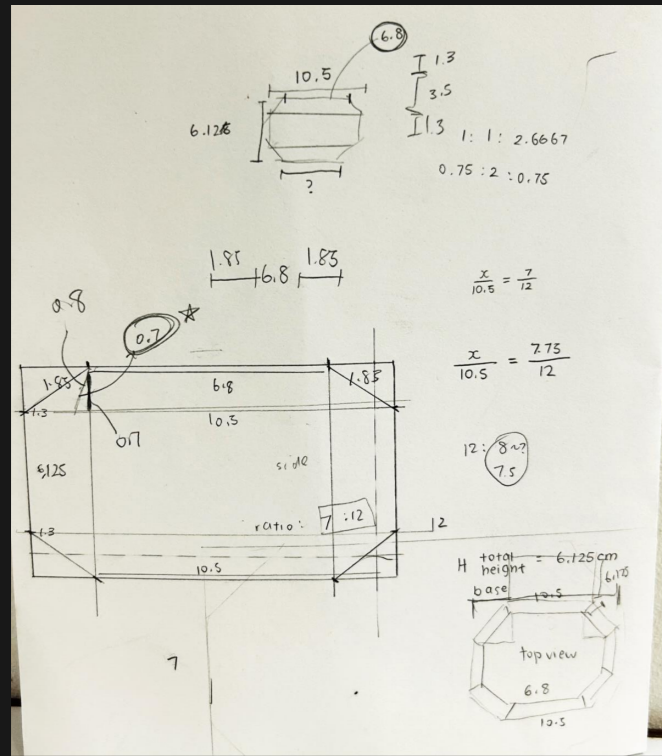 6.8
10.5
1.3
3.5
1.3
6.125
?
1 : 1 : 2.6667
0.75 : 2 : 0.75
1.85 6.8 1.85
x/10.5 = 7/12
0.8
0.7
x/10.5 = 7.75/12
1.85 6.8 1.85
1.3
10.5
12 : 8~?
7.5
6,125
side
ratio: 7 : 12
1.3
12
10.5
H total height = 6.125cm
base
10.5
6.125
top view
6.8
10.5
7